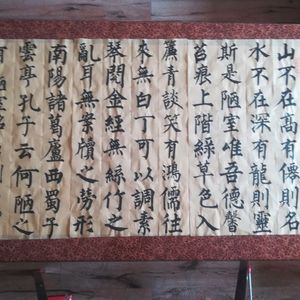 山不在高有僊則名
水不在深有龍則靈
斯是陋室唯吾德馨
苔痕上階綠草色入
簾青談笑有鴻儒往
來無白丁可以調素
琴閱金經無絲竹之
亂耳無案牘之勞形
南陽諸葛廬西蜀子
雲亭孔子云何陋之
有陋室銘